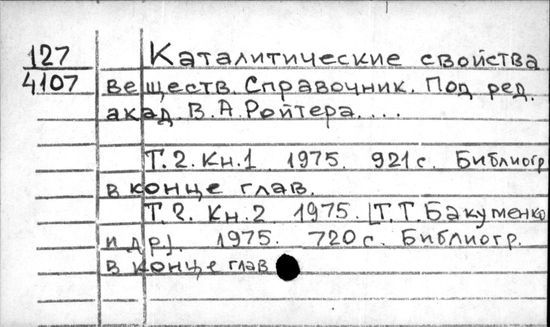 127 Каталитические свойства
4107 веществ. Справочник. Под ред.
акад. В. А. Ройтера. ...
Т. 2. Кн. 1 1975. 921 с. Библиогр
в конце глав.
Т. 2. Кн. 2 1975. [Т. Т. Бакуменко
и др]. 1975. 720 с. Библиогр.
в конце глав